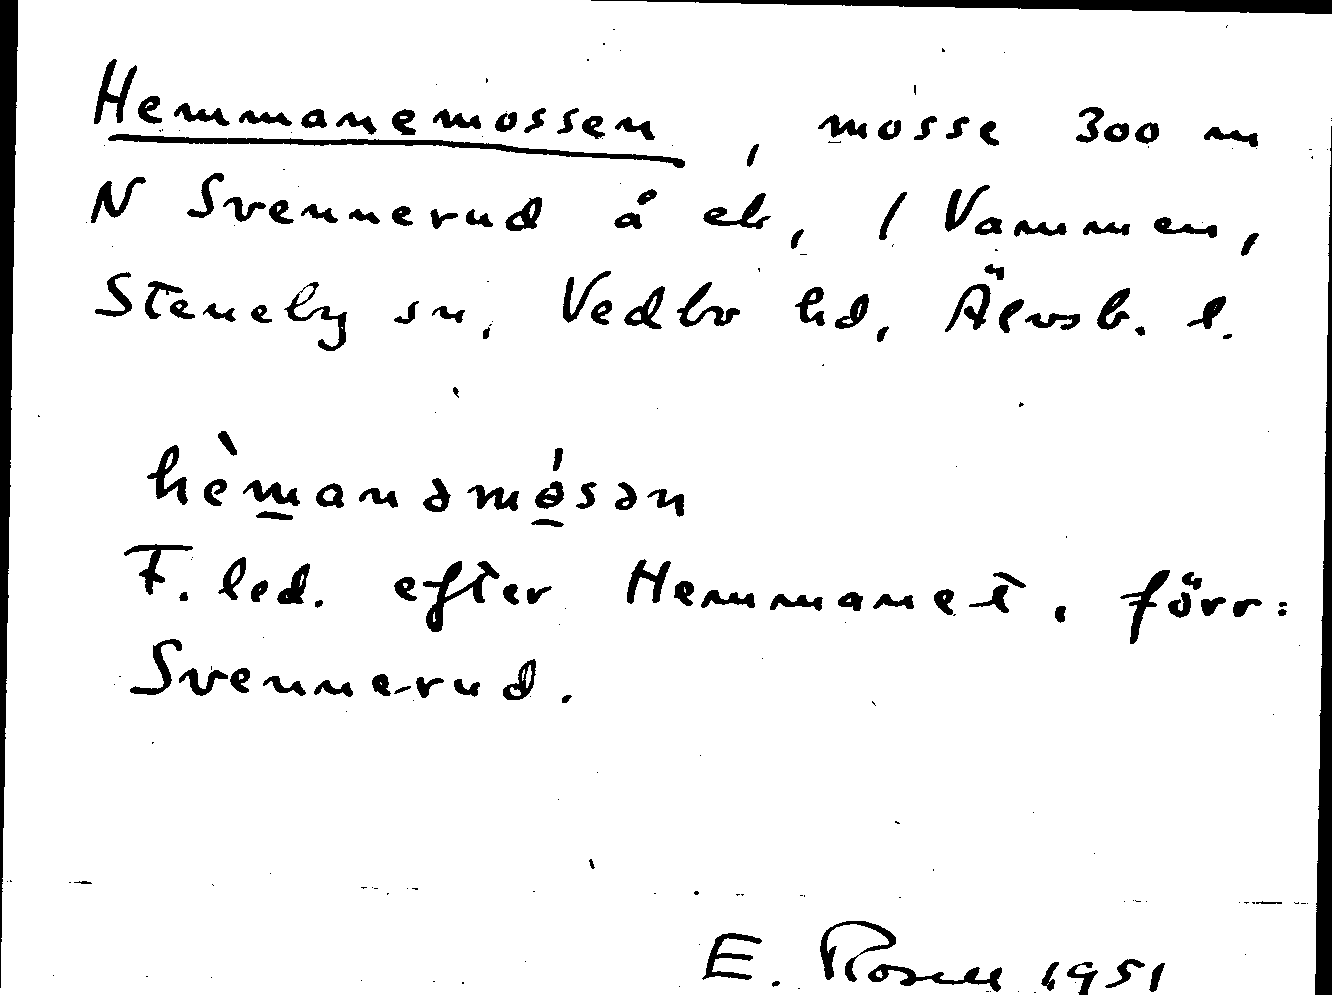 Hemmanemossen, mosse 300 m
N Svennerud å ek, 1 Vammen,
Steneby sn, Vedbo hd, Älvsb. l.
hèmanəmósən
F. led. efter Hemmanet, förr:
Svennerud.
E. Rosell 1951